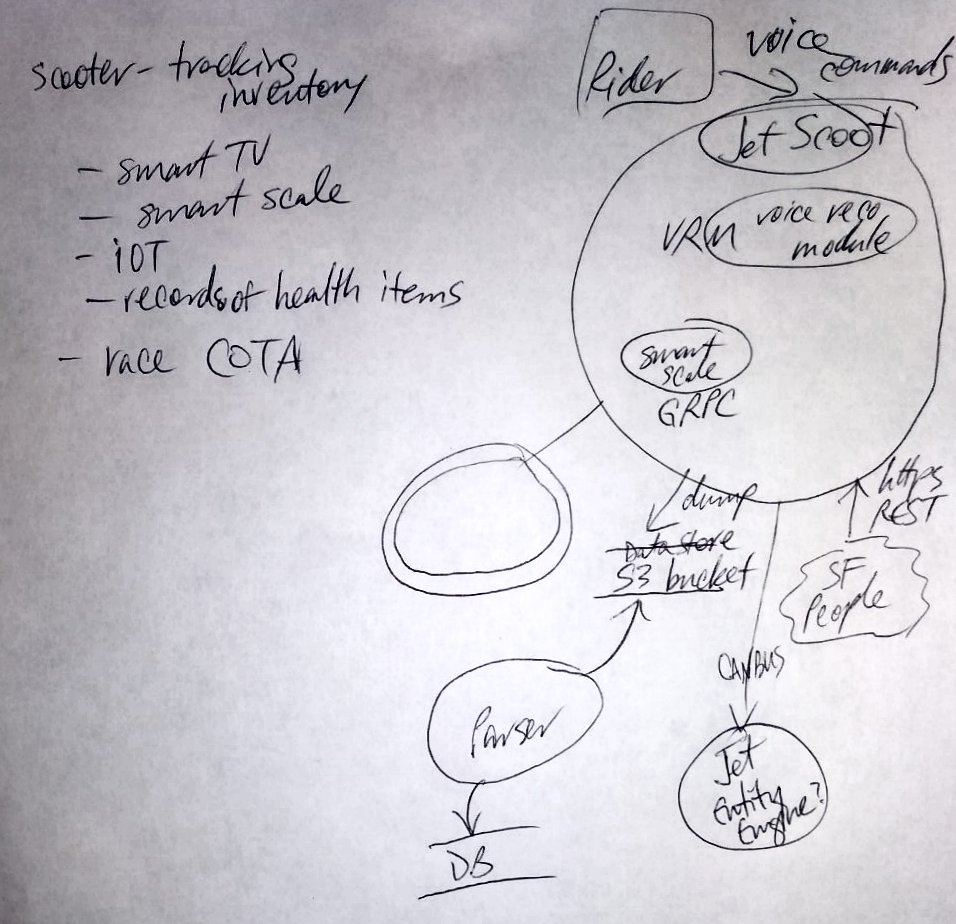 scooter - tracking
inventory
- smart TV
- smart scale
- iOT
- records of health items
- race COTA
Rider
voice
commands
Jet Scoot
VRM
voice reco
module
smart
scale
GRPC
dump
Data Store
S3 bucket
https
REST
SF
People
CANBUS
Parser
Jet
Entity
Engine?
DB